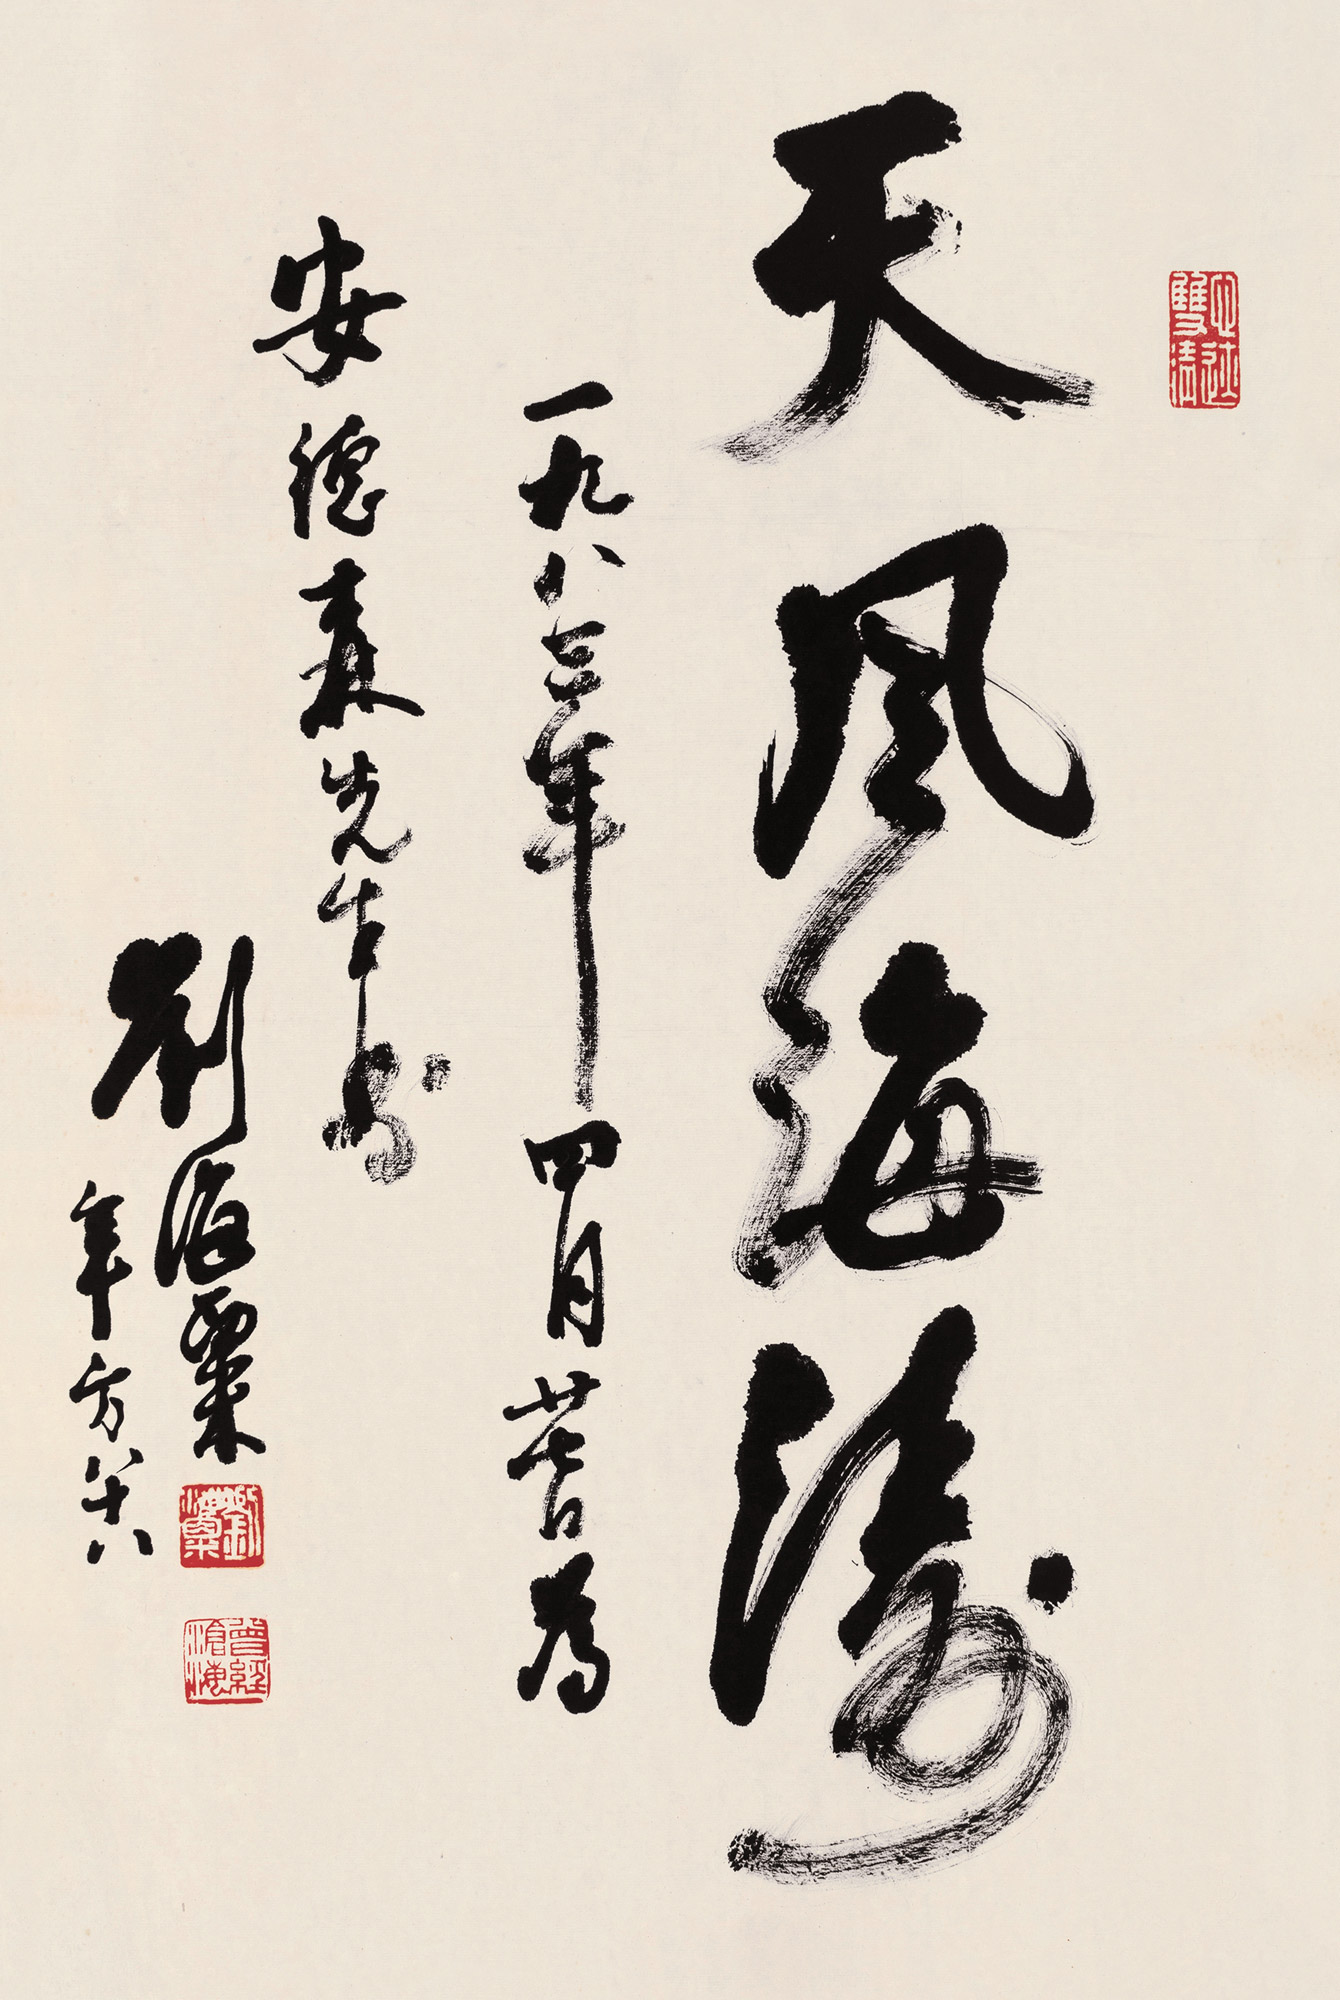 天風海濤
一九八三年四月廿七日為
安德森先生書
劉海粟
年方八十八
心迹雙清
劉海粟
曾經滄海